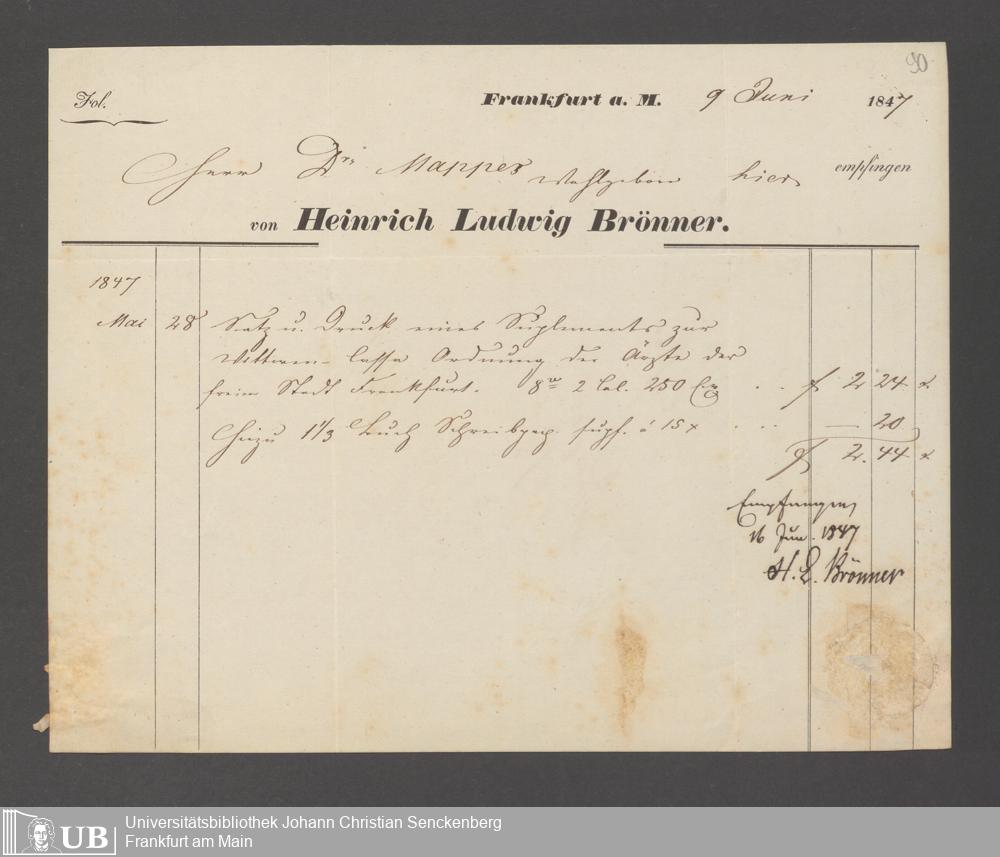 90
Fol. Frankfurt a. M. 9 Juni 1847
Herr Dr. Mappes Wohlgeboren hier empfingen
von Heinrich Ludwig Brönner.
1847
Mai 28 Satz u. Druck eines Suplements zur
Wittwen-Cassa Ordnung der Ärzte der
freien Stadt Frankfurt. 8º 2 Col. 250 Ex f 2 24 x
Hiezu 1 1/3 Buch Schreibpap. supf. á 15 x — 20
f 2. 44 x
Empfangen
16 Jun. 1847
H. L. Brönner
UB Universitätsbibliothek Johann Christian Senckenberg
Frankfurt am Main